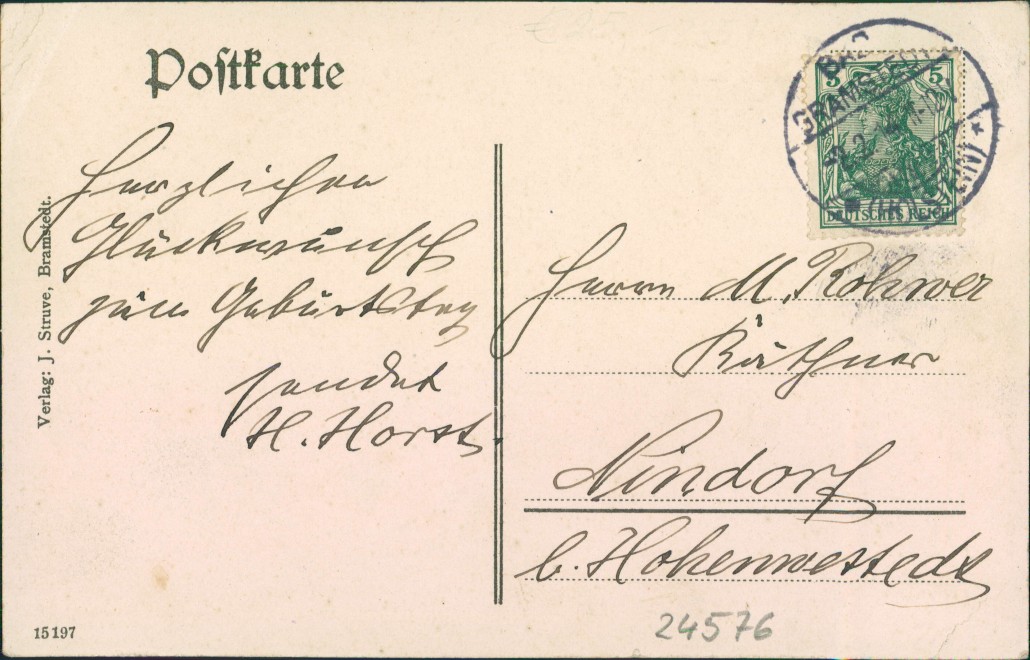 Postkarte
Herzlichen
Glückwunsch
zum Geburtstag
sendet
H. Horst.
Verlag: J. Struve, Bramstedt.
15197
BAD
BRAMSTEDT
5 5
DEUTSCHES REICH
Herrn M. Rohwer
Käthner
Nindorf
b. Hohenwestedt
24576